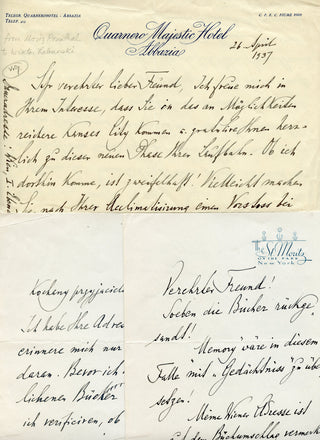 TELEGR. QUARNEROHOTEL - ABBAZIA
TELEF.
C. P. E. C. FIUME
Quarnero Majestic Hotel
Abbazia
from Moriz Rosenthal
to
26 April
1937
Sehr verehrter lieber Freund, Ich freue mich in
Ihrem Interesse, dass Sie in das an Möglichkeiten
reichere Kansas City kommen u. gratuliere Ihnen herz-
lich zu dieser neuen Phase Ihrer Laufbahn. Ob ich
dorthin komme, ist zweifelhaft! Vielleicht machen
Sie nach Ihrer Acclimatisirung einen Vorstoss bei
Wien, I.
Kochany
Ich habe Ihre Adres
erinnere mich nur
daran. Bevor ich
liehenen Bücher
ich verificiren, ob
The St Moritz
ON THE PARK
New York
Verehrter Freund!
Soeben die Bücher rückge-
sandt!
„Memory" wäre in diesem
Falle mit „Gedächtniss" zu über
setzen!
Meine Wiener Adresse ist
auf dem Buchumschlag vermerk